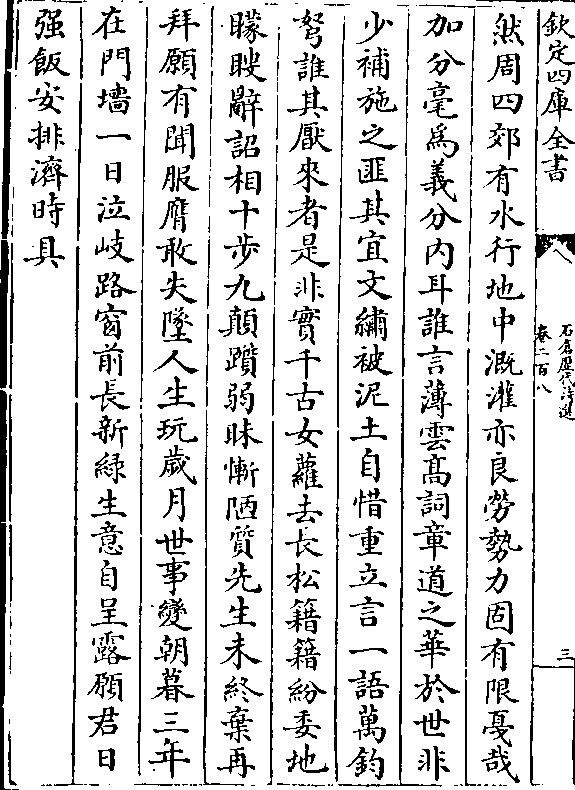 欽定四庫全書
石倉歷代詩選
卷二百八
三
然周四郊有水行地中溉灌亦良勞勢力固有限戞哉
加分毫為義分内耳誰言薄雲髙詞章道之華於世非
少補施之匪其宜文繡被泥土自惜重立言一語萬鈞
弩誰其厭來者是非實千古女蘿去長松籍籍紛委地
矇瞍辭詔相十步九顛躓弱昧慚陋質先生未終棄再
拜願有聞服膺敢失墜人生玩歲月世事變朝暮三年
在門墻一日泣岐路窗前長新緑生意自呈露願君日
强飯安排濟時具